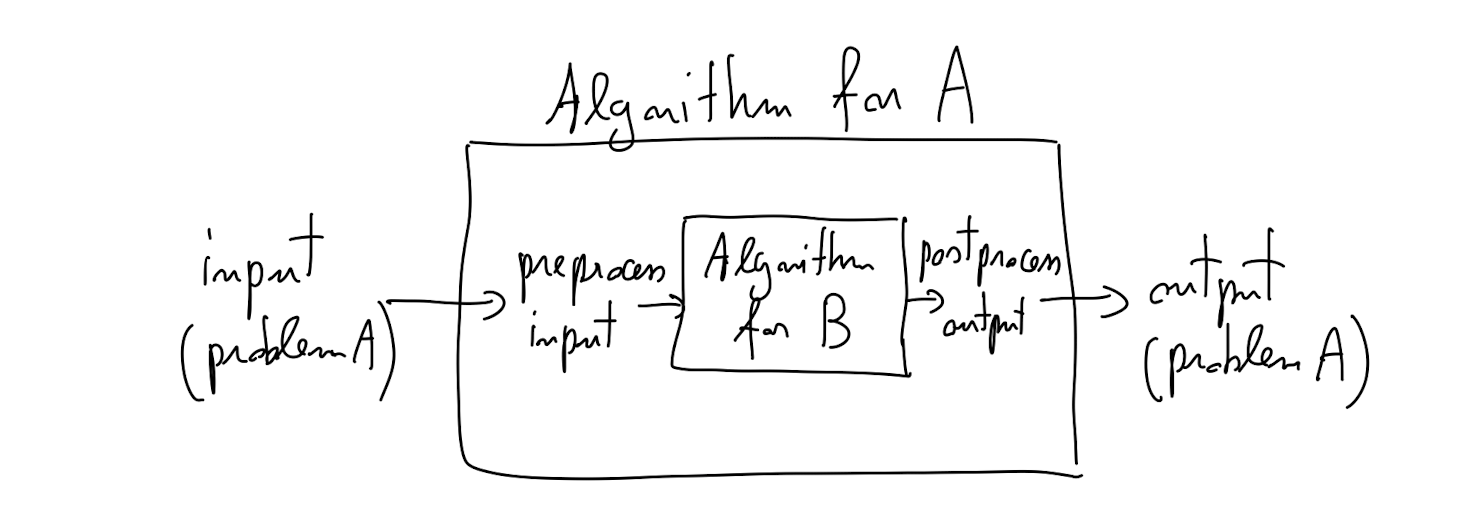 Algorithm for A
input
(problem A)
preprocess
input
Algorithm
for B
postprocess
output
output
(problem A)